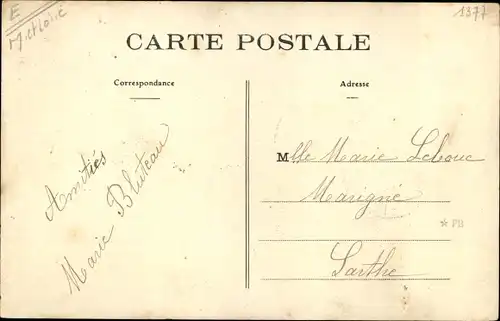 E
1377
CARTE POSTALE
Correspondance
Adresse
Amitiés
Marie Bluteau
Mlle Marie Lebouc
Marigné
* FII
Sarthe